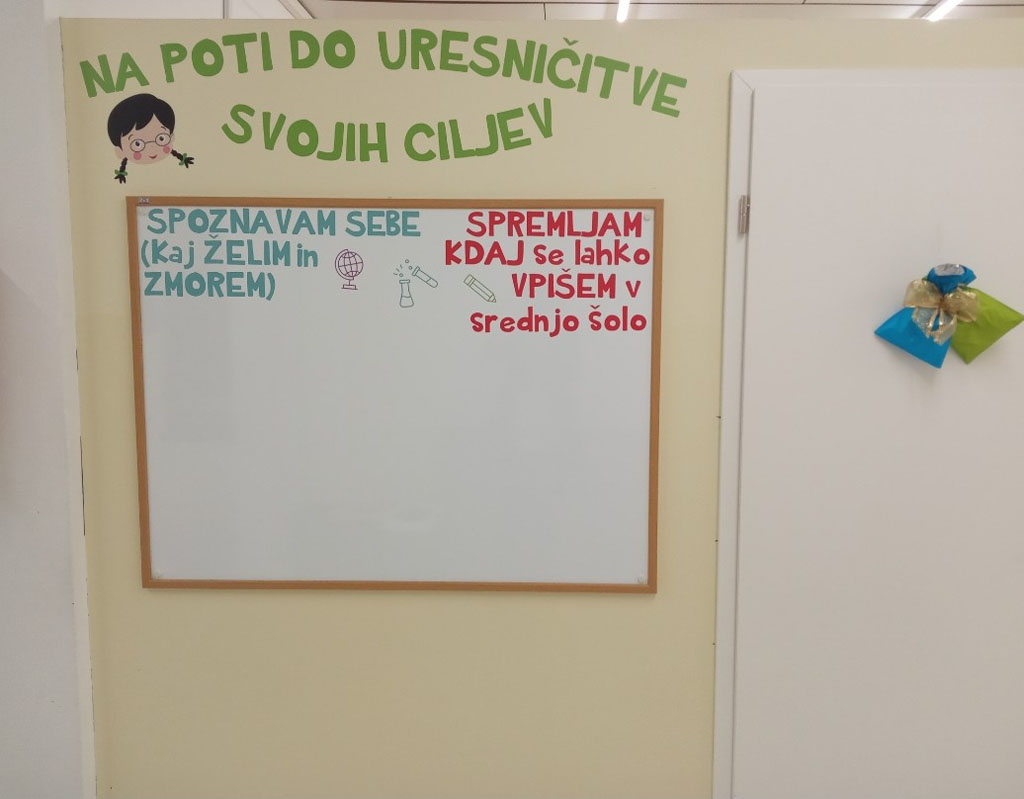 NA POTI DO URESNIČITVE
SVOJIH CILJEV
SPOZNAVAM SEBE
(Kaj ŽELIM in
ZMOREM)
SPREMLJAM
KDAJ se lahko
VPIŠEM v
srednjo šolo